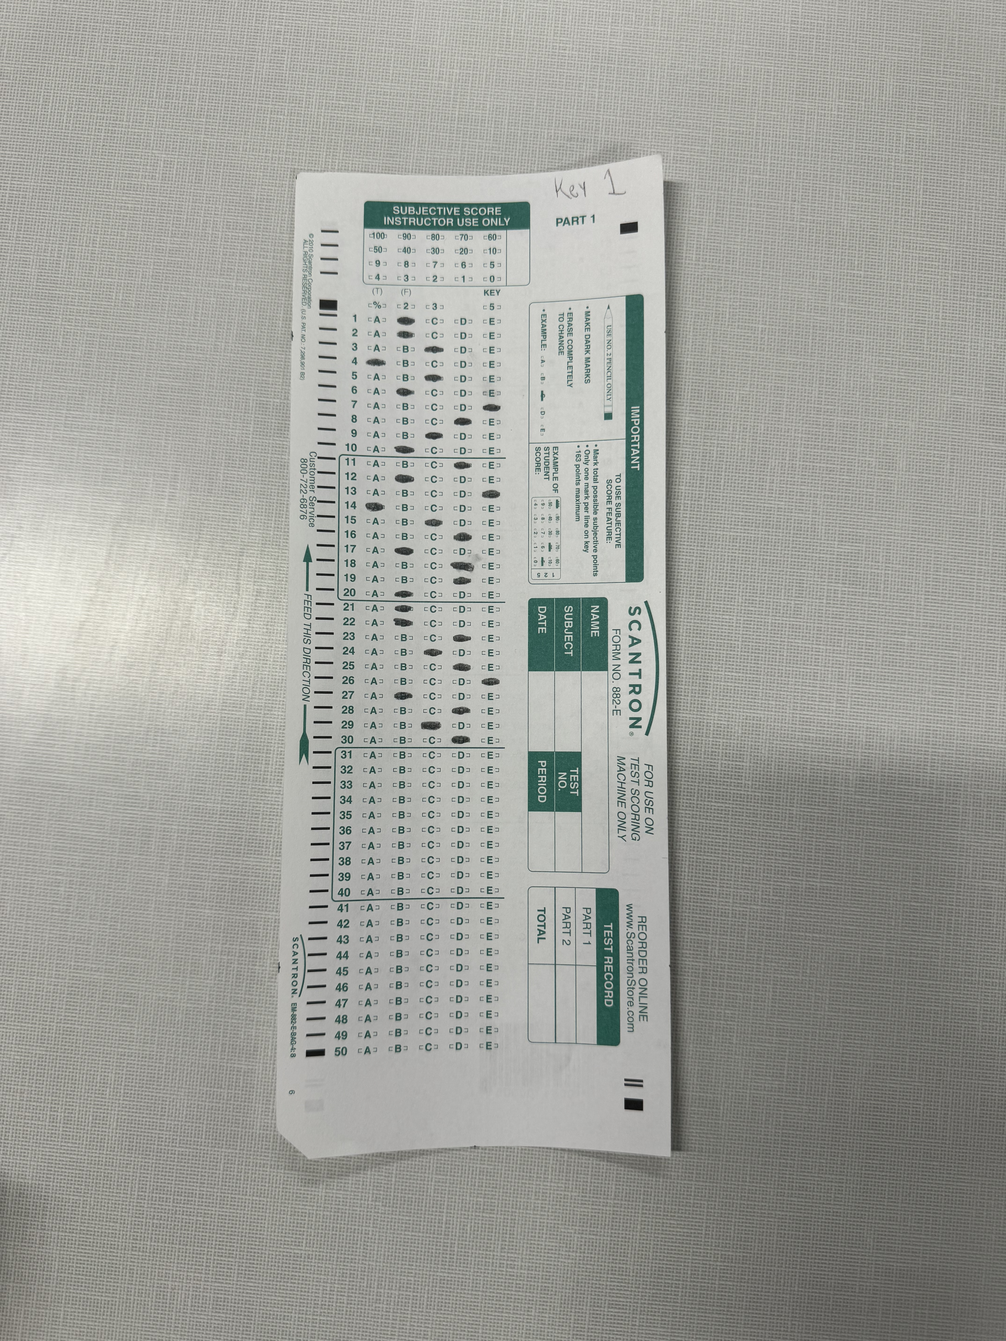 Key 1
PART 1
SUBJECTIVE SCORE
INSTRUCTOR USE ONLY
100 90 80 70 60
50 40 30 20 10
9 8 7 6 5
4 3 2 1 0
(T) (F) KEY
% 2 3 5
1 A C D E
2 A C D E
3 A B D E
4 B C D E
5 A B D E
6 A C D E
7 A B C D
8 A B C E
9 A B D E
10 A C D E
11 A B C E
12 A C D E
13 A B C D
14 B C D E
15 A B D E
16 A B C E
17 A C D E
18 A B C E
19 A B C E
20 A C D E
21 A C D E
22 A C D E
23 A B C E
24 A B D E
25 A B C E
26 A B C D
27 A C D E
28 A B C E
29 A B D E
30 A B C E
31 A B C D E
32 A B C D E
33 A B C D E
34 A B C D E
35 A B C D E
36 A B C D E
37 A B C D E
38 A B C D E
39 A B C D E
40 A B C D E
41 A B C D E
42 A B C D E
43 A B C D E
44 A B C D E
45 A B C D E
46 A B C D E
47 A B C D E
48 A B C D E
49 A B C D E
50 A B C D E
IMPORTANT
USE NO. 2 PENCIL ONLY
• MAKE DARK MARKS
• ERASE COMPLETELY
TO CHANGE
• EXAMPLE: A B D E
TO USE SUBJECTIVE
SCORE FEATURE:
• Mark total possible subjective points
• Only one mark per line on key
• 163 points maximum
EXAMPLE OF
STUDENT
SCORE:
SCANTRON®
FORM NO. 882-E
FOR USE ON
TEST SCORING
MACHINE ONLY
NAME
SUBJECT
TEST
NO.
DATE
PERIOD
REORDER ONLINE
www.ScantronStore.com
TEST RECORD
PART 1
PART 2
TOTAL
© 2010 Scantron Corporation
ALL RIGHTS RESERVED.
Customer Service
800-722-6876
FEED THIS DIRECTION
SCANTRON.
6